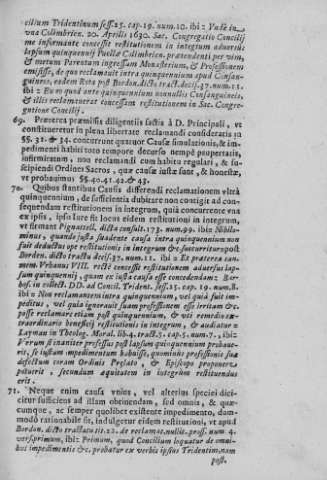 cilium Tridentinum sess.25. cap.19. num.10. ibi: Vnde in
vna Colimbrien. 20. Aprilis 1630. Sac. Congregatio Concilij
me informante concessit restitutionem in integrum aduersus
lapsum quinquennij Puellæ Colimbrien. prætendenti per vim,
& metum Parentum ingressam Monasterium, & Professionem
emisisse, de quo reclamauit intra quinquennium apud Consan-
guineos, eadem Rota post Bordon. dicto tract. decis.37. num.11.
ibi: Eum quod ante quinquennium nonnullis Consanguineis,
& illis reclamauerat concessam restitutionem in Sac. Congre-
gatione Concilij.
69. Præterea præmissis diligentijs factis à D. Principali, vt
constitueretur in plena libertate reclamandi consideratis in
§§. 31. & 34. concurrunt quatuor Causæ simulationis, & im-
pedimenti habiti toto tempore decurso nempè paupertatis,
infirmitatum, non reclamandi cum habitu regulari, & su-
scipiendi Ordines Sacros, quæ causæ iustæ sunt, & honestæ,
vt probauimus §§.40.41.42. & 43.
70. Quibus stantibus Causis differendi reclamationem vltrà
quinquennium, de sufficientia dubitare non contigit ad con-
sequendam restitutionem in integrum, quià concurrente vna
ex ipsis, ipso Iure fit locus eidem restitutioni in integrum,
vt firmant Pignattell. dicta consult.173. num.99. ibi: Nihilo-
minus, quando iusta suadente causa intra quinquennium non
fuit deductus ope restitutionis in integrum &c. succurritur: post
Bordon. dicto tractu decis.37. num. 11. ibi: Ex præterea san-
mem. Vrbanus VIII. rectè concessit restitutionem aduersus lap-
sum quinquennij, quam ex iusta causa esse concedendam: Bar-
bos. in collect. DD. ad Concil. Trident. sess.25. cap. 19. num.8.
ibi: Non reclamantem intra quinquennium, vel quià fuit im-
peditus, vel quià ignorauit suam professionem esse irritam &c.
posse reclamare etiam post quinquennium, & vti remedio ex-
traordinario beneficij restitutionis in integrum, & audiatur:
Layman in Theolog. Moral. lib.4. tract.5. cap.5. num.7., ibi:
Verum si inaniter professus post lapsum quinquennium probaue-
rit, se iustum impedimentum habuisse, quominus professionis suæ
defectum coram Ordinis Prælato, & Episcopo proponere
potuerit, secundum æquitatem in integrum restituendus
erit.
71. Neque enim causa vnica, vel alterius speciei di-
citur sufficiens ad illam obtinendam, sed omnis, & quæ-
cumque, ac semper quolibet existente impedimento, dum-
modò rationabile sit, indulgetur eidem restitutioni, vt apud
Bordon. dicto tractatu tit. 22. de reclamat. nullit. profess. num. 9.
vers. primum, ibi: Primum, quod Concilium loquatur de omni-
bus impedimentis &c. probatur ex verbis ipsius Tridentini, nam
post.